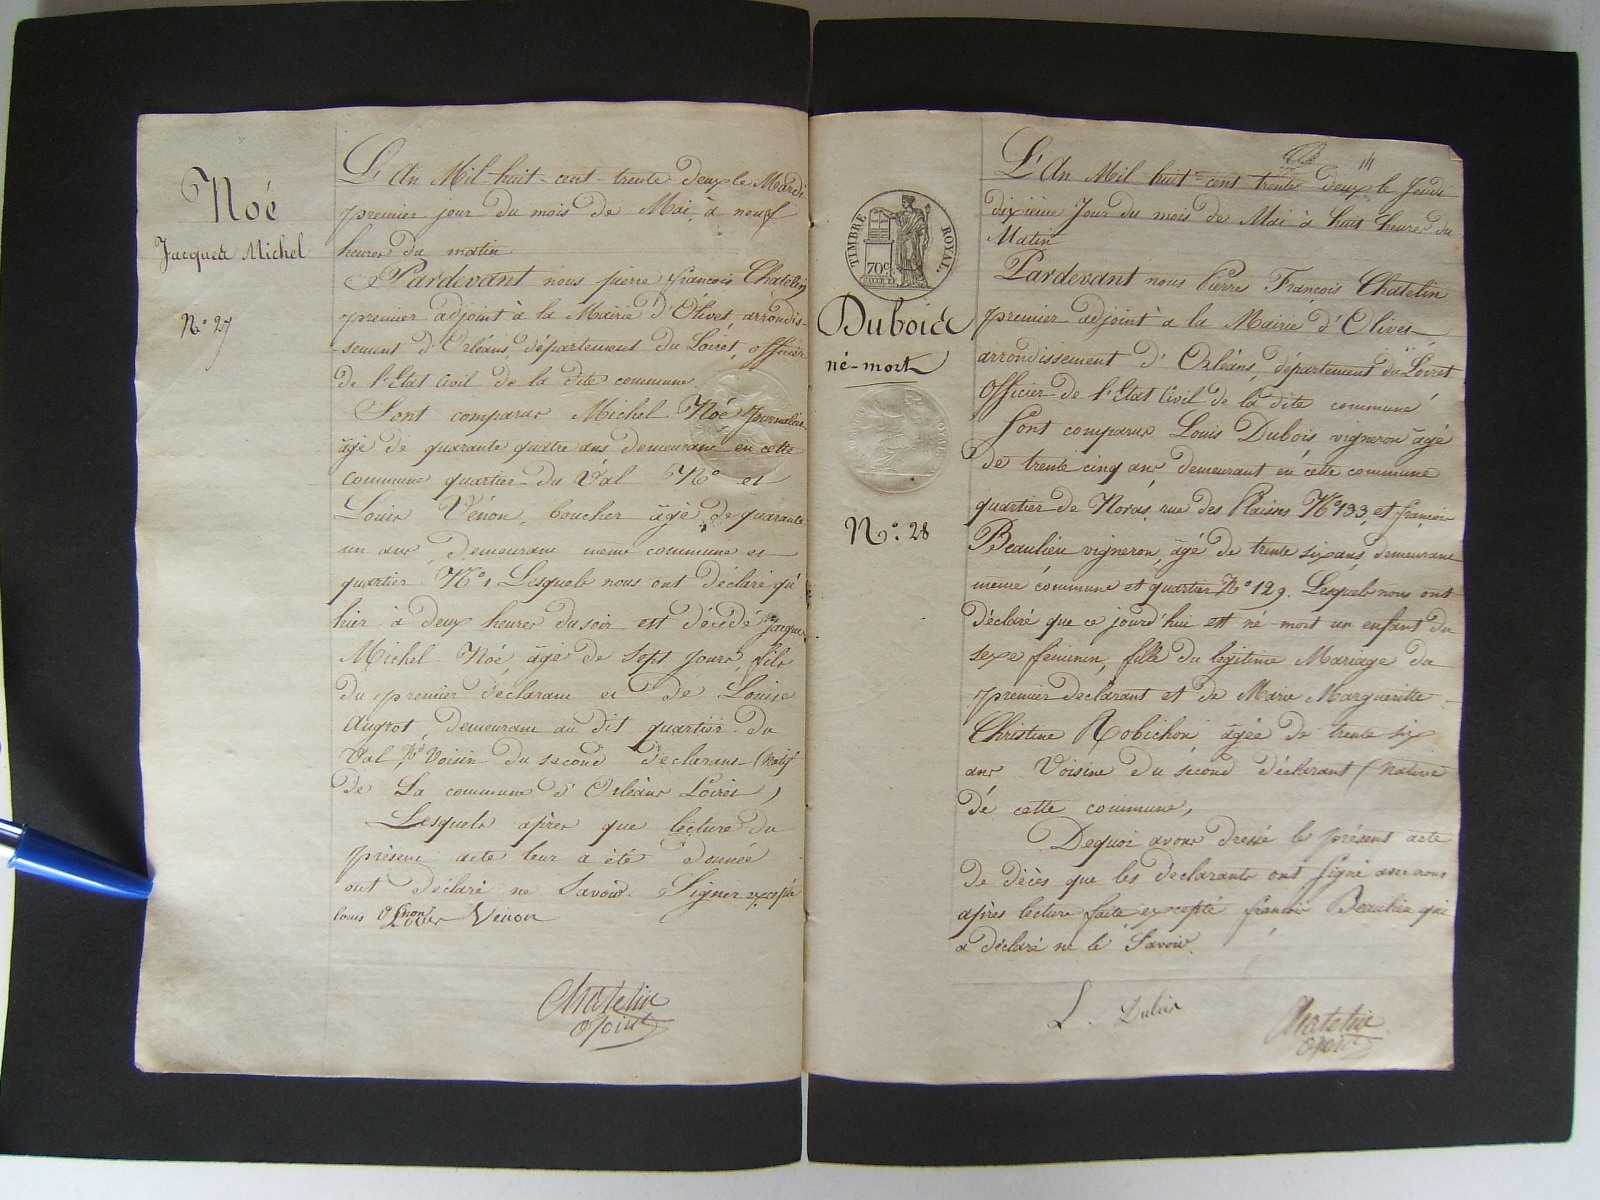 Noé
Jacques Michel
N.° 27
L'An Mil-huit-cent-trente deux le Mardi
premier jour du mois de Mai, à neuf
heures du matin
Pardevant nous pierre françois Chatelin
premier adjoint à la Mairie d'Olivet arrondis-
-sement d'Orléans, département du Loiret, officier
de l'Etat Civil de la dite commune.
Sont comparus Michel Noé Journalier
âgé de quarante quatre ans demeurant en cette
commune quartier du Val N° et
Louis Vénon, boucher âgé de quarante
un ans demeurant même commune et
quartier N° 1 Lesquels nous ont déclaré qu'
hier à deux heures du soir est décédé Jacques
Michel Noé âgé de sept jours, fils
du premier déclarant et de Louise
Augrot, demeurant au dit quartier du
Val, Voisin du second déclarant (natif
de La commune d'Orléans Loiret)
Lesquels après que lecture du
présent acte leur a été donnée
ont déclaré ne Savoir Signer excepté
louis Vénon Louis Vénon
Chatelin
adjoint
TIMBRE ROYAL.
70c
Dubois
né-mort
N.° 28
14
L'An Mil huit-cent trente deux le Jeudi
dixième Jour du mois de Mai à huit heures du
Matin
Pardevant nous Pierre François Chatelin
premier adjoint à la Mairie d'Olivet
arrondissement d'Orléans, département du Loiret
Officier de l'Etat Civil de la dite commune
Sont comparus Louis Dubois vigneron âgé
de trente cinq ans demeurant en cette commune
quartier de Noras rue des Plaisses N° 133, et françois
Beaulieu vigneron, âgé de trente six ans, demeurant
même commune et quartier N° 129. Lesquels nous ont
déclaré que ce jourd'hui est né-mort un enfant du
sexe féminin, fille du légitime Mariage du
premier déclarant et de Marie Margueritte
Christine Robichon âgée de trente six
ans Voisine du second déclarant (native
de cette commune,
Dequoi avons dressé le présent acte
de décès que les déclarants ont signé avec nous
après lecture faite excepté françois Beaulieu qui
a déclaré ne le Savoir.
L. Dubois
Chatelin
adjoint